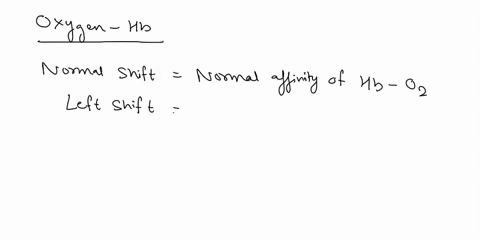 Oxygen - Hb
Normal Shift = Normal affinity of Hb - O2
Left Shift =